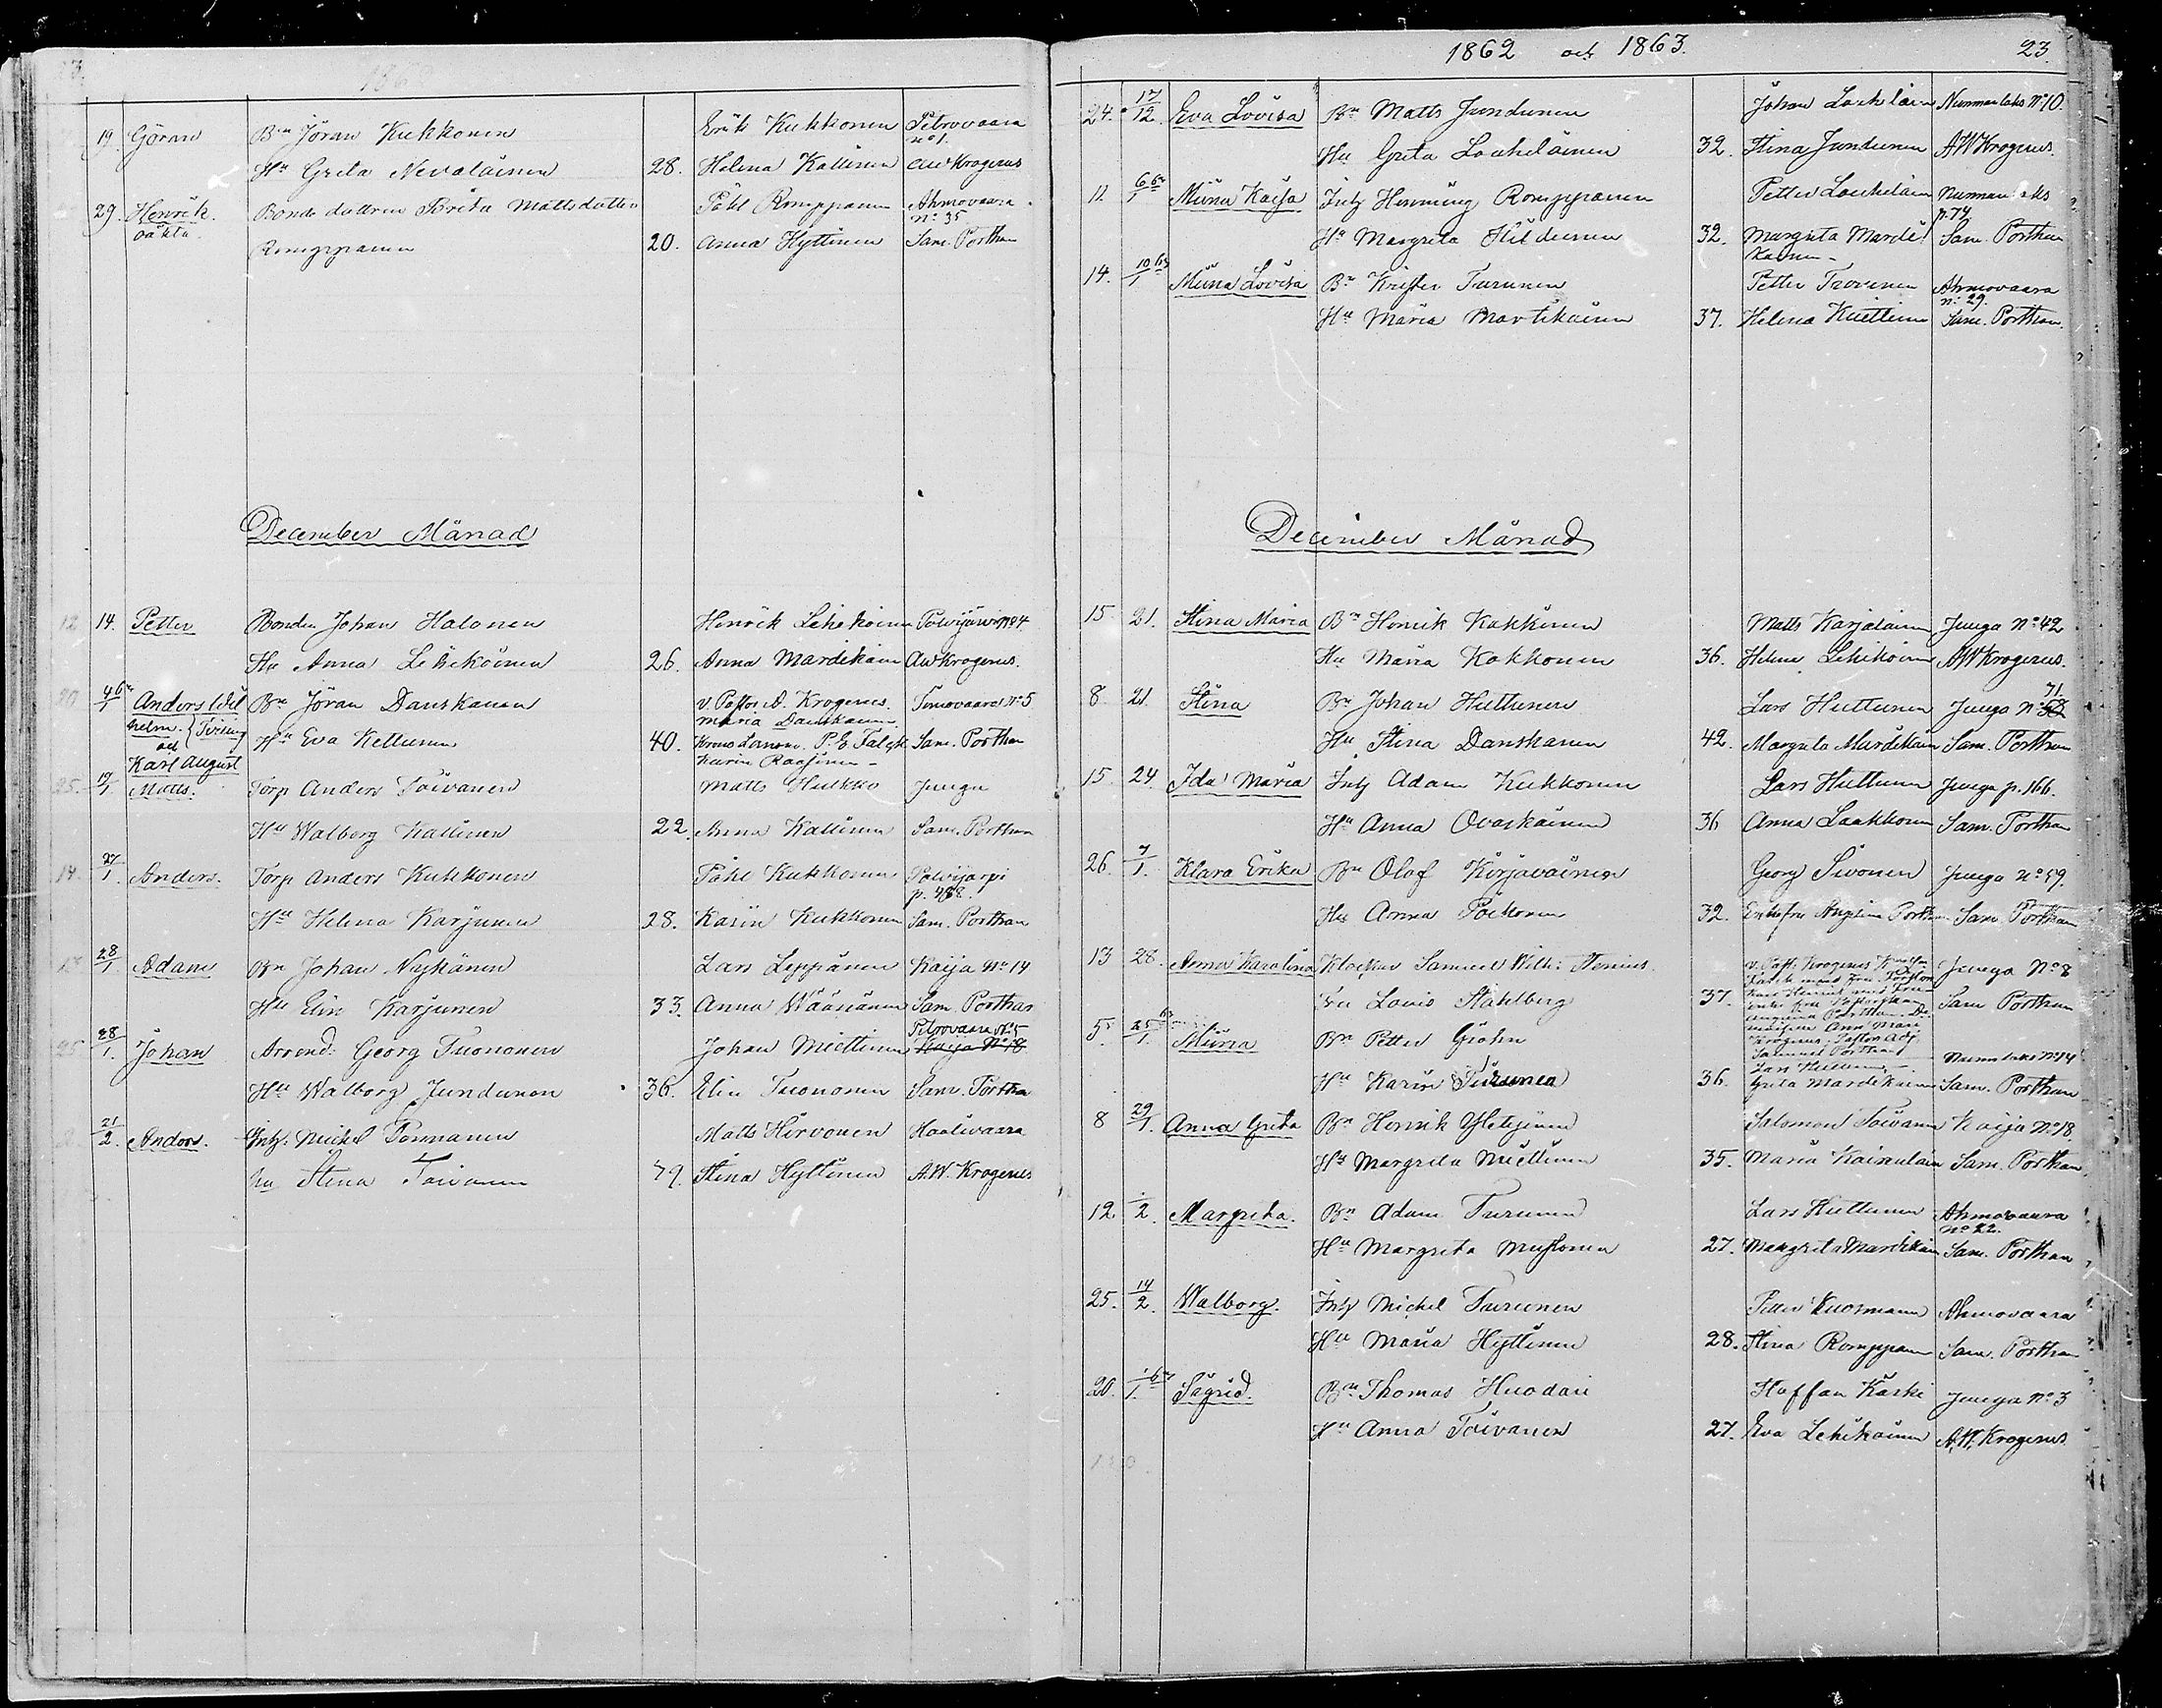 23.
19. Göran Bn Jöran Kukkonen Erik Kukkonen Petrovaara
no 1.
Hu Greta Nevalainen 28. Helena Kallinen AW Krogerus
29. Henrik. Bonde dottren Brita Mattsdotter Påhl Romppanen Ahmovaara
oäkta. no 35
Romppanen 20. Anna Hyttinen Sam. Porthan
December Månad
12 14. Petter Bonden Johan Halonen Henrik Lehikoinen Polvijärvi No 4
Hu Anna Lehikoinen 26. Anna Mardikain AW Krogerus.
20 4/1 63 Anders Wil Bn Jöran Danskanen v. Pastor A. Krogerus. Timovaara No 5
helm. Tvilling Maria Danskanen
och Hu Eva Kettunen 40. Krono Länsm. P. E. Falck Sam. Porthan
Karl August Karin Raasinen
25. 19/1 Matts. Torp Anders Toivanen Matts Hukko Juuga
Hu Walborg Kallinen 22. Anna Kallinen Sam. Porthan
14. 27/1. Anders. Torp Anders Kukkonen Påhl Kukkonen Polvijärvi
p. 488.
Hu Helena Karjunen 28. Karin Kukkonen Sam. Porthan
28/1. Adam Bn Johan Nykänen Lars Leppänen Kaija No 14
Hu Elin Karjunen 33. Anna Wäänänen Sam. Porthan
Petrovaara No 5
25 28/1. Johan Arrend. Georg Tuononen Johan Miettinen Kaija No 18
Hu Walborg Jundunen 36. Elin Tuononen Sam. Portha
21/2. Anders. Inh: Michel Ponnanen Matts Hirvonen Haalivaara
hu Stina Toivanen 29. Stina Hyttinen A.W. Krogerus
1862 och 1863. 23.
24. 17/12. Eva Lovisa Bn Matts Jundunen Johan Louhelain Nunnanlaks No 10.
Hu Greta Louhelainen 32. Stina Jundunen AW Krogerus.
11 6/1 63 Miina Kaisa Inh Henning Romppanen Petter Louhelain Nunnanlaks
p. 74
Hu Margreta Hiltunen 32. Margreta Mardi Sam. Porthan
kainen
14. 10/1 63 Miina Lovisa Bn Krister Turunen Petter Ahmovaara
n: 29.
Hu Maria Martikainen 37. Helena Kuittinen Sam. Porthan.
December Månad
15 21. Stina Maria Bn Henrik Kokkonen Matts Karjalainen Juuga No 42
Hu Maria Kokkonen 36. Helena Lehikoinen AW Krogerus.
71.
8 21. Stina Bn Johan Huttunen Lars Huttunen Juuga No 58
Hu Stina Danskanen 42. Margreta Mardikain Sam. Porthan
15 24. Ida Maria Inh Adam Kukkonen Lars Huttunen Juuga p. 166.
Hu Anna Ovaskainen 36 Anna Laukkonen Sam. Porthan
26. 7/1. Klara Erika Bn Olof Kirjavainen Georg Sivonen Juuga No 59.
Hu Anna Poikonen 32. Enkefru Angelina Porthan Sam. Porthan
13 28. Anna Karolina Klockar Samuel Wilh: Stenius v. Past. Krogerus Juuga No 8
Fru Lovis Stahlberg 37. Sam Porthan
Krogerus. Pastor Adj.
5. 25/1 63 Miina Bn Petter Gröhn Samuel Porthan Nunnlaks No 14
Hu Karin Turunen 36. Greta Mardikainen Sam. Porthan
8 29/1. Anna Greta Bn Henrik Salomon Toivanen Kaija No 18
Hu Margreta Miettinen 35. Maria Kainulain Sam. Porthan
12 /2. Margreta. Bn Adam Turunen Lars Kuttunen Ahmovaara
No 22.
Hu Margreta Mustonen 27. Margreta Mardikain Sam. Porthan
25. 14/2. Walborg. Inh Michel Turunen Petter Kuosmanen Ahmovaara
Hu Maria Hyttinen 28. Stina Romppanen Sam. Porthan
20. /1. 63 Sigrid. Bn Thomas Huodari Staffan Koski Juuga No 3
Hu Anna Toivanen 27. Eva Lehikoinen A.W. Krogerus